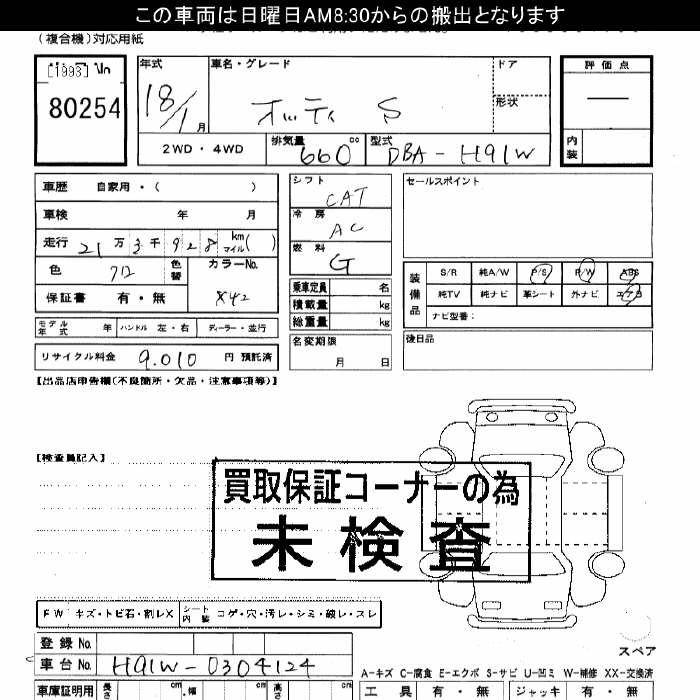 この車両は日曜日AM8:30からの搬出となります
（複合機）対応用紙
[1993]
80254
年式
18/1月
車名・グレード
オッティ S
ドア
形状
評価点
―
内装
2WD・4WD
排気量
660 cc
型式
DBA-H91W
車歴 自家用・（ ）
車検 年 月
走行 21万3千928 km マイル( )
色
色替
カラーNo.
X42
保証書 有・無
モデル年式 年
ハンドル 左・右
ディーラー・並行
リサイクル料金 9,010 円 預託済
シフト
CAT
冷房
AC
燃料
G
乗車定員 名
積載量 kg
総重量 kg
名変期限
月 日
セールスポイント
装備品
S/R 純A/W P/S P/W ABS
純TV 純ナビ 革シート 外ナビ エアB
ナビ型番：
後日品
【出品店申告欄（不良箇所・欠品・注意事項等）】
【検査員記入】
買取保証コーナーの為
未検査
FW キズ・トビ石・割レX
シート内装 コゲ・穴・汚レ・シミ・破レ・スレ
登録No.
車台No. H91W-0304124
スペア
A-キズ C-腐食 E-エクボ S-サビ U-凹ミ W-補修 XX-交換済
車庫証明用 長さ cm 幅 cm 高さ cm
工具 有・無 ジャッキ 有・無